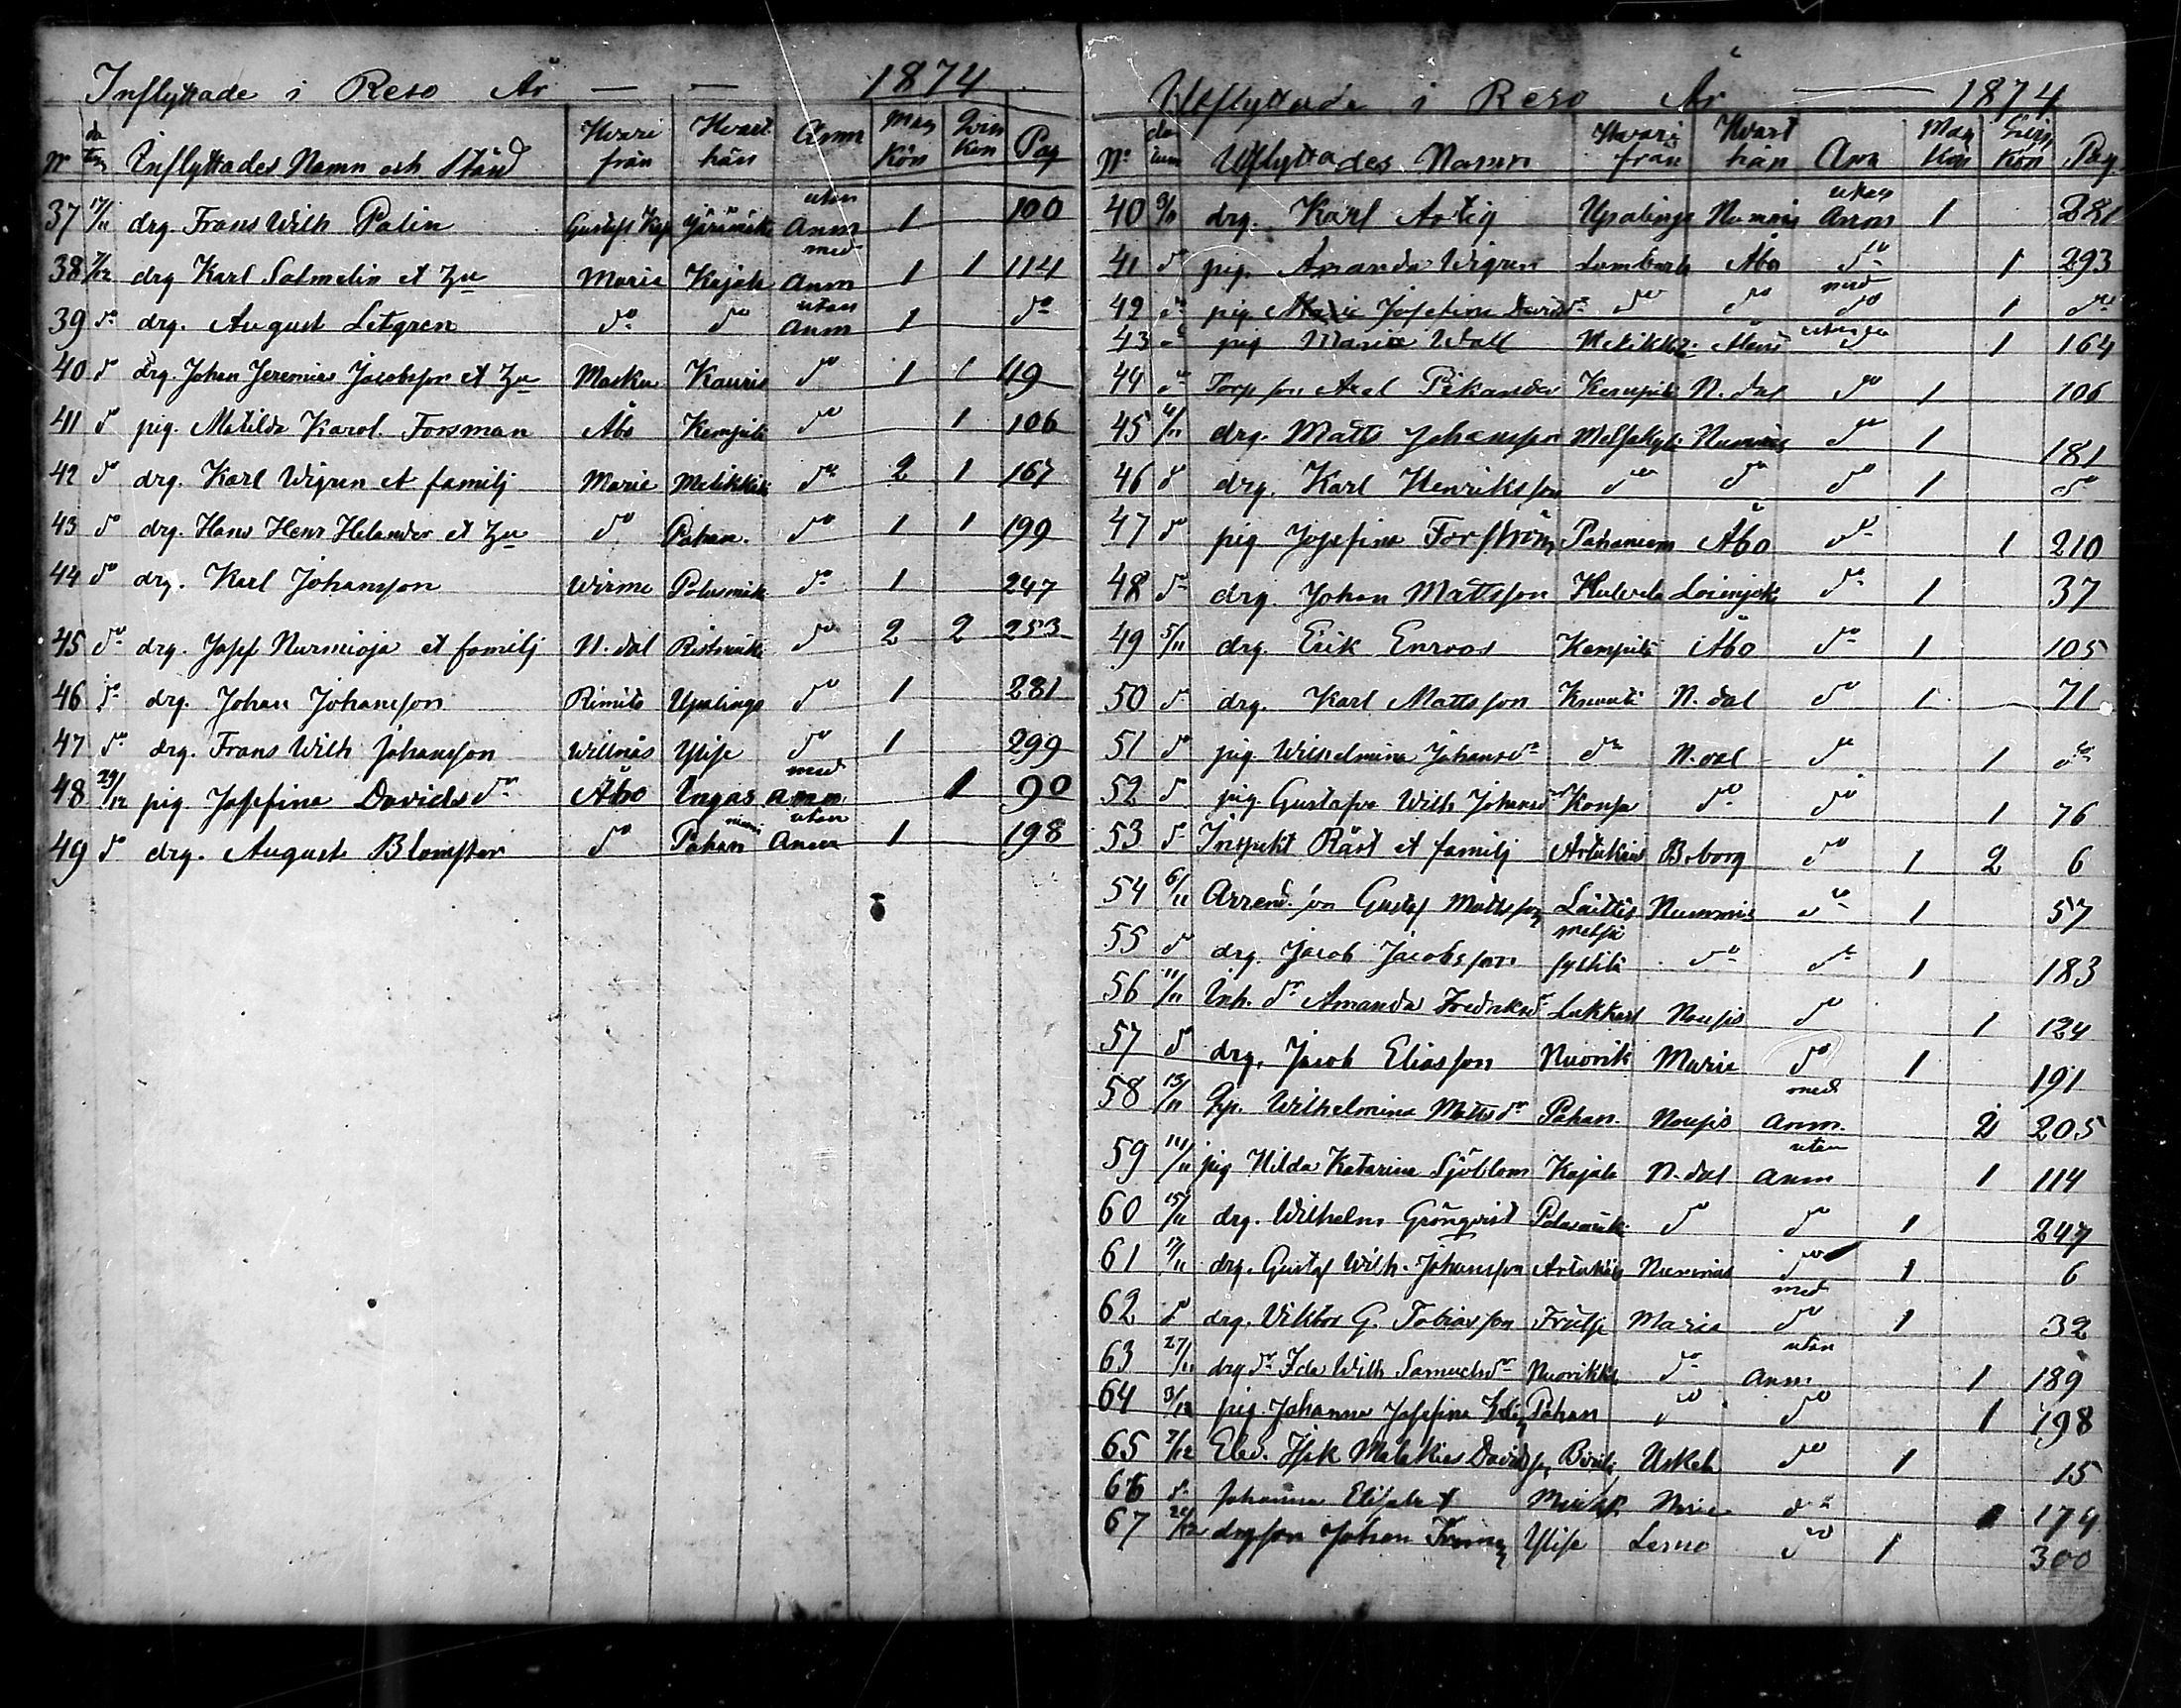 Inflyttade i Reso År — — 1874
No datum Inflyttades Namn och Stånd Hvari från Hvart hän Anm Man Kön Qvin Kön Pag
37 17/11 drg. Frans Wilh Palin uten Anm 1 100
38 7/12 drg Karl Salmelin et Hu Marie Kajala med Anm 1 1 114
39 do drg. August Litgren do do uten Anm 1 do
40 do drg. Johan Jeremias Jacobsson et Hu Masku Kauris do 1 1 49
41 do pig. Matilda Karol. Forsman Åbo Kempile do 1 106
42 do drg. Karl Wigren et familj Marie Metikkä do 2 1 167
43 do drg. Hans Henr Helander et Hu do Pahan. do 1 1 199
44 do drg. Karl Johansson Wirmo Polusmäk do 1 247
45 do drg. Josef Nurmioja et familj N. dal Ristimäki do 2 2 253
46 do drg. Johan Johansson Rimito Upalinge do 1 281
47 do drg. Frans Wilh Johansson Willnäs Ylise do 1 299
48 29/12 pig. Josefina Davidsdr Åbo Ingas med anm 1 90
49 do drg. August Blomster do Pahan niemi uten Anm 1 198
Utflyttade i Reso År — 1874
No datum Utflyttades Namn Hvari från Hvart hän Anm Man Kön Qvin Kön Pag.
40 drg. Karl Artig Upalinge Nummis utan Anm 1 281
41 do pig. Amanda Wigren Lumbarla Åbo do 1 293
42 do pig. Maria Josefina Davidsdr do do med do 1 do
43 do pig Maria Wall Metikkä utan do 1 164
44 do Torp son Axel Pikander Kempile N. dal do 1 106
45 4/11 drg. Matts Johansson Nummis do 1 181
46 do drg. Karl Henriksson do do do 1 do
47 do pig Josefina Forsström Pahaniem Åbo do 1 210
48 do drg. Johan Mattsson Hulvela Loimjok do 1 37
49 5/11 drg. Erik Enroos Kempile Åbo do 1 105
50 do drg. Karl Mattsson N. dal do 1 71
51 do pig. Wilhelmina Johansdr do N. dal do 1 do
52 do pig. Gustafva Wilh Johansdr Konsa do do 1 76
53 do Inspekt Räst et familj Artukais B.borg do 1 2 6
54 6/11 Arrend. son Gustaf Mattsson Laittis Nummis do 1 57
55 do drg. Jacob Jacobsson Metsä kylkilä do do 1 183
56 11/11 Inh. dr Amanda Fredriksdr Lukkari Nousis do 1 124
57 do drg. Jacob Eliasson Nuorik Marie do 1 191
58 13/11 Wilhelmina Mattsdr Pahan. Nousis med anm. 2 205
59 14/11 pig Hilda Katarina Sjöblom Kajala N. dal uten anm 1 114
60 15/11 drg. Wilhelm Grönqvist Polusmäki do do 1 247
61 17/11 drg. Gustaf Wilh. Johansson Artukais Nummis do 1 6
62 do drg. Viktor G. Tobiasson Frälse Marie med do 1 32
63 27/11 drg dr Ida Wilh Samuelsdr Nuorikka do utan Anm 1 189
64 3/12 pig. Johanna Josefina Pahan do do 1 198
65 7/12 Elev. Isak Malakias Davidss. Uskela do 1 15
66 do Johanna Elisabet Marie do 1 174
67 24/12 drgson Johan Ylise Lerno do 1 300